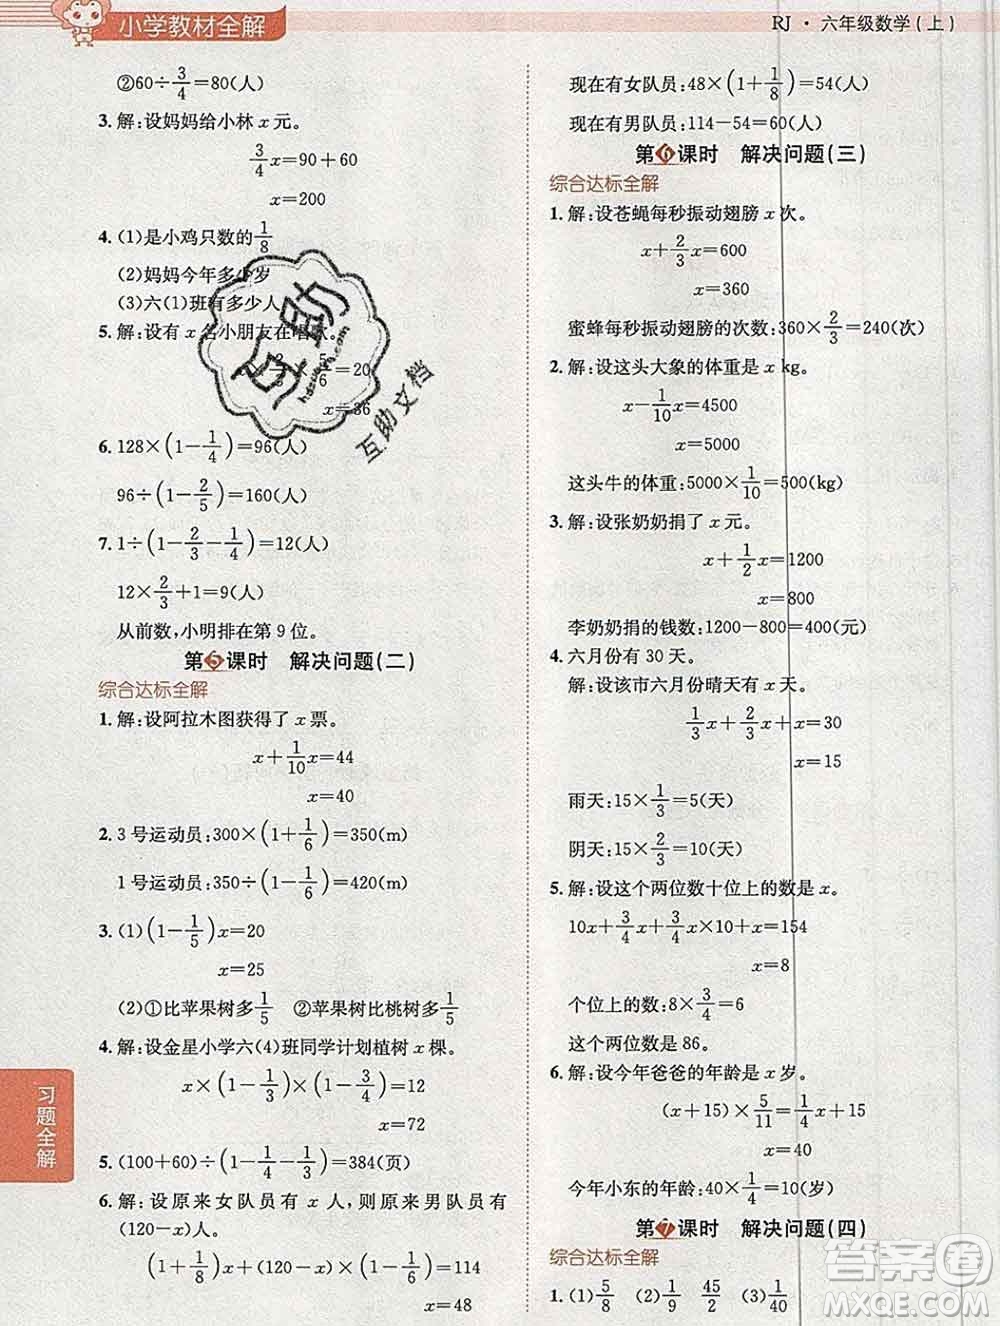 小学教材全解
RJ · 六年级数学(上)
②60÷3/4=80(人)
3. 解:设妈妈给小林 x 元。
3/4x=90+60
x=200
4. (1)是小鸡只数的1/8
(2)妈妈今年多少岁
(3)六(1)班有多少人
5. 解:设有 x 名小朋友在唱歌。
2/3×5/6=20
x=36
6. 128×(1−1/4)=96(人)
96÷(1−2/5)=160(人)
7. 1÷(1−2/3−1/4)=12(人)
12×2/3+1=9(人)
从前数,小明排在第 9 位。
第5课时 解决问题(二)
综合达标全解
1. 解:设阿拉木图获得了 x 票。
x+1/10x=44
x=40
2. 3 号运动员:300×(1+1/6)=350(m)
1 号运动员:350÷(1−1/6)=420(m)
3. (1)(1−1/5)x=20
x=25
(2)①比苹果树多1/5 ②苹果树比桃树多1/5
4. 解:设金星小学六(4)班同学计划植树 x 棵。
x×(1−1/3)×(1−3/4)=12
x=72
5. (100+60)÷(1−1/4−1/3)=384(页)
6. 解:设原来女队员有 x 人,则原来男队员有
(120−x)人。
(1+1/8)x+(120−x)×(1−1/6)=114
x=48
习题全解
现在有女队员:48×(1+1/8)=54(人)
现在有男队员:114−54=60(人)
第6课时 解决问题(三)
综合达标全解
1. 解:设苍蝇每秒振动翅膀 x 次。
x+2/3x=600
x=360
蜜蜂每秒振动翅膀的次数:360×2/3=240(次)
2. 解:设这头大象的体重是 x kg。
x−1/10x=4500
x=5000
这头牛的体重:5000×1/10=500(kg)
3. 解:设张奶奶捐了 x 元。
x+1/2x=1200
x=800
李奶奶捐的钱数:1200−800=400(元)
4. 六月份有 30 天。
解:设该市六月份晴天有 x 天。
1/3x+2/3x+x=30
x=15
雨天:15×1/3=5(天)
阴天:15×2/3=10(天)
5. 解:设这个两位数十位上的数是 x。
10x+3/4x+3/4x×10+x=154
x=8
个位上的数:8×3/4=6
这个两位数是 86。
6. 解:设今年爸爸的年龄是 x 岁。
(x+15)×5/11=1/4x+15
x=40
今年小东的年龄:40×1/4=10(岁)
第7课时 解决问题(四)
综合达标全解
1. (1)5/8 (2)1/9 45/2 (3)1/40
互助
互助文档
答案圈
MXQE.COM